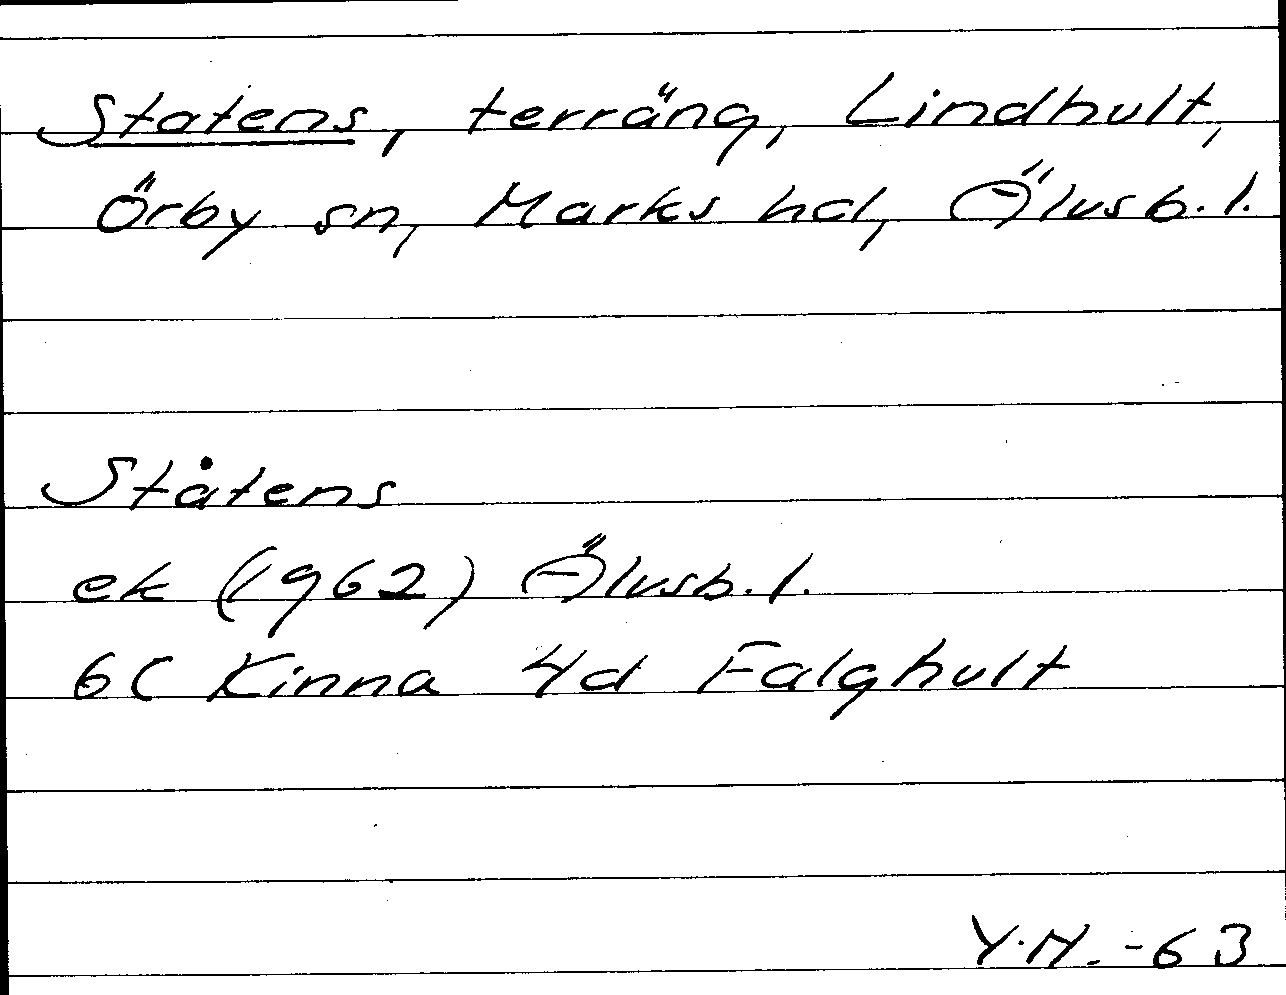 Statens, terräng, Lindhult,
Örby sn, Marks hd, Älvsb. l.
Ståtens
ek (1962) Älvsb. l.
6C Kinna 4d Falghult
Y.M. -63